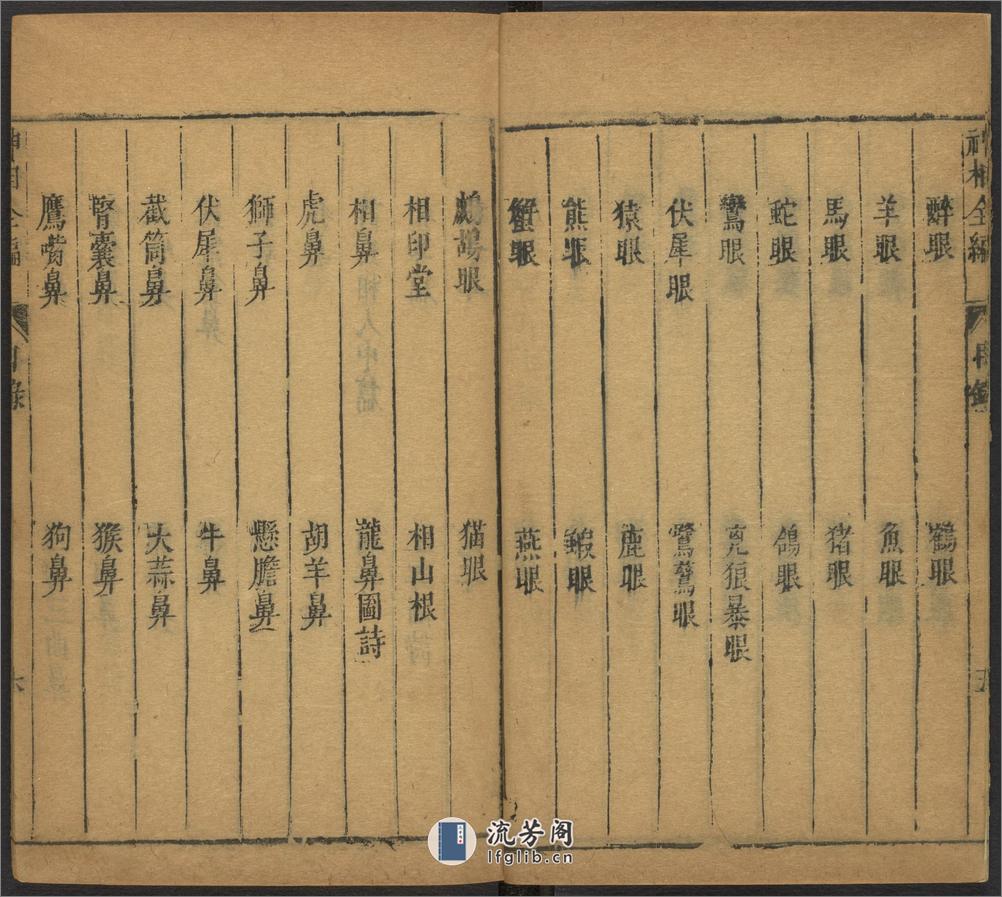 神相全編 目錄 五
醉眼 鶴眼
羊眼 魚眼
馬眼 猪眼
蛇眼 鴿眼
鸞眼 狼暴眼
伏犀眼 鷺鷥眼
猿眼 鹿眼
熊眼 鰕眼
蟹眼 燕眼
鷓鴣眼 猫眼
相印堂 相山根
相鼻 龍鼻圖詩
虎鼻 胡羊鼻
獅子鼻 懸膽鼻
伏犀鼻 牛鼻
截筒鼻 大蒜鼻
腎囊鼻 猴鼻
鷹嘴鼻 狗鼻
神相全編 目錄 六
流芳阁
lfglib.cn